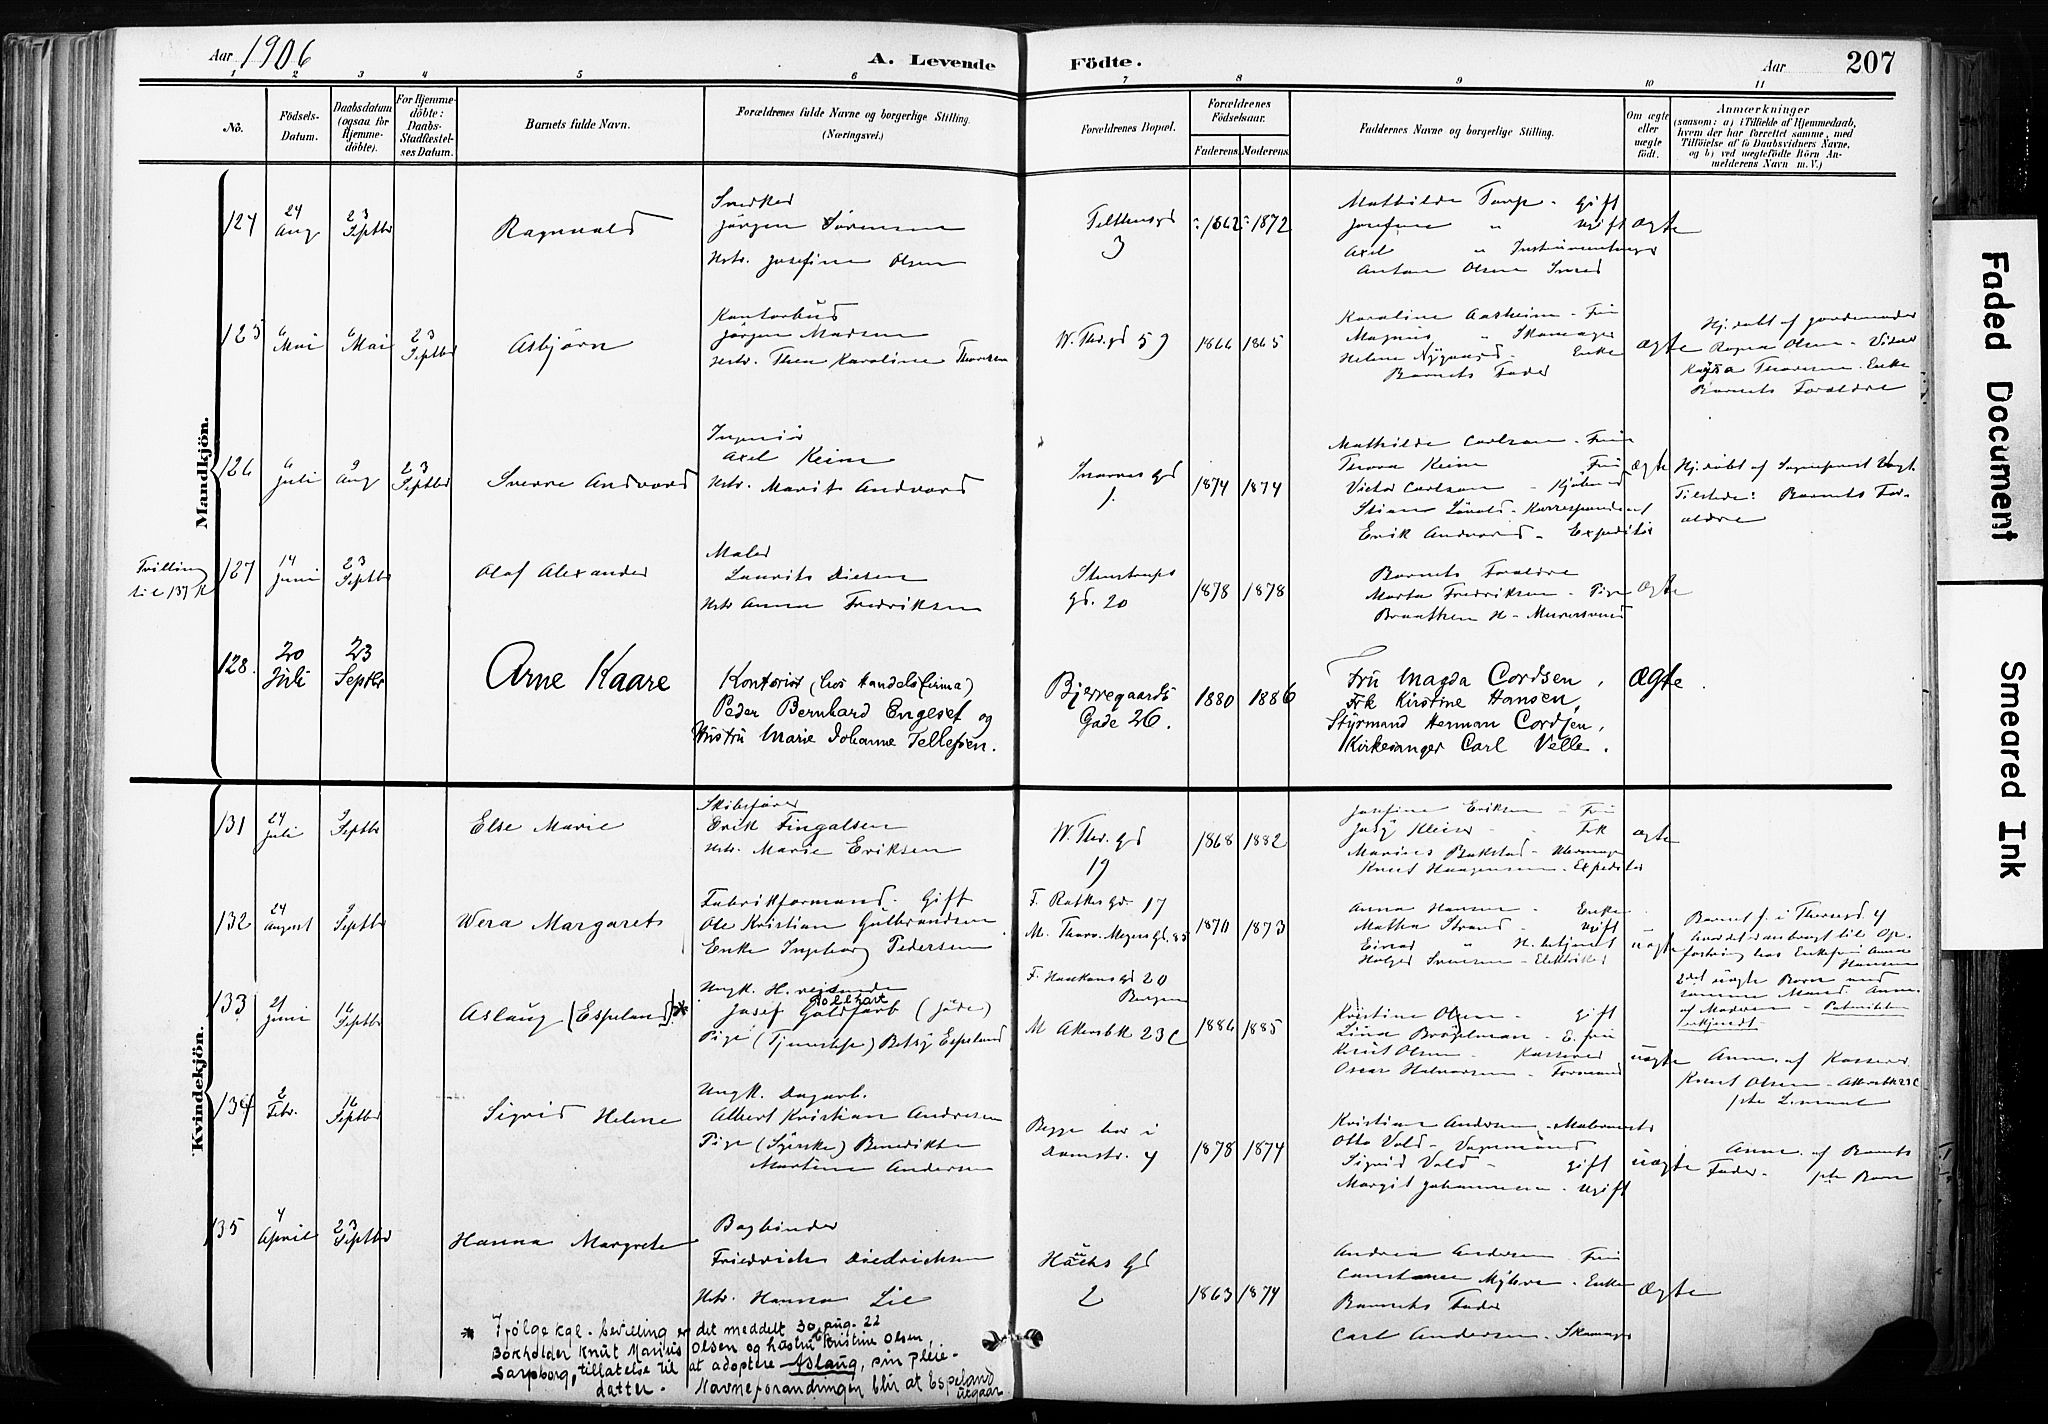 Aar 1906
A. Levende Födte.
Aar
207
1 2 3 4 5 6 7 8 9 10 11
No.
Födsels-Datum.
Daabsdatum (ogsaa for Hjemme-döbte).
For Hjemme-döbte: Daabs-Stadfæstel-ses Datum.
Barnets fulde Navn.
Forældrenes fulde Navne og borgerlige Stilling.
(Næringsvei.)
Forældrenes Bopæl.
Forældrenes Födselsaar.
Faderens. Moderens.
Faddernes Navne og borgerlige Stilling.
Om ægte eller uægte födt.
Anmærkninger
(saasom: a) i Tilfælde af Hjemmedaab,
hvem der har forrettet samme, med
Tilföielse af to Daabsvidners Navne,
og b) ved uægtefödte Börn An-
melderens Navn m.V.)
Mandkjön.
124
24 Aug
23 Septbr
Ragnvald
Snedker
Jörgen Sörensen
Hstr. Josefine Olsen
Telthusgd
3
1862 1872
Mathilde Torp - Gift
Josefine " Ugift
Axel " Instrumentmager
Anton Olsen Sned
ægte
125
6 Mai
6 Mai
23 Septbr
Asbjørn
Kontorbud
Jörgen Madsen
Hstr. Thea Karoline Thoresen
W. Thr. gd 59
1866 1865
Karoline Aasheim - Fru
Magnus " Skomager
Helene Nygaard - Enke
Barnets Fader
ægte
Hj. døbt af jordemoder
Ragna Olsen - Vidner
Kaysa Thoresen - Enke
Barnets Forældre
126
6 Juli
9 Aug
23 Septbr
Sverre Andvord
Ingeniör
Axel Keim
Hstr. Marit Andvord
Snorres Gd
1.
1874 1874
Mathilde Carlson - Frue
Thora Keim Fru
Victor Carlson - Kjøbmd
Stian Lövold - Korrespondent
Erik Andvord - Expeditör
ægte
Hj. döbt af Sogneprest Vogt.
Tilstede: Barnets For-
ældre
Tvilling
til 137 K
127
14 Juni
23 Septbr
Olaf Alexander
Maler
Laurits Diesen
Hstr Anna Fredriksen
Stenstrups
gd. 20
1878 1878
Barnets Forældre
Marta Fredriksen - Pige
Braathen H - Murersvend
ægte
128.
20 Juli
23 Septbr
Arne Kaare
Kontorist (hos Handelsfirma)
Peder Bernhard Engeset og
Hustru Marie Johanne Tellefsen.
Bjerregaards
Gade 26.
1880 1886
Fru Magda Cordsen,
Frk Kirstine Hansen,
Styrmand Herman Cordsen,
Kirkesanger Carl Velle.
ægte.
Kvindekjön.
131
24 Juli
9 Septbr
Else Marie
Skibsfører
Erik Fingalsen
Hstr. Marie Eriksen
W. Thr. Gd
19
1868 1882
Josefine Eriksen - Fru
Knut Haagensen - Expeditör
ægte
132
24 August
9 Septbr
Wera Margaret
Fabrikformand. Gift
Ole Kristian Gulbrandsen
Enke Ingeborg Pedersen
F. Rathkes Gd. 17
M. Thorv. Meyers Gd. 85
1870 1873
Anna Hansen - Enke
Martha Strand - Ugift
Einar " H. betjent
Holger Svensen - Elektriker
uægte
133
21 Juni
16 Septbr
Aslaug (Espeland) *
Ungk. H. reisende
Josef Gollhart Goldfarb (Jöde)
Pige (Tjeneste) Betsy Espeland
F. Haakons Gd 20
Bergen
M Akersbk 23 C
1886 1885
Kristine Olsen - gift
Lina Brögelman - E. fru
Knut Olsen - Kasserer
Oscar Halvorsen - Formand
uægte
Anm. af Kasserer
Knut Olsen - Akersbk 23 C
134
6 Febr.
16 Septbr
Sigrid Helene
Ungk. Dagarb.
Albert Kristian Andresen
Pige (Syerske) Benedikte
Martine Andersen
Begge bor i
Damstr. 4
1878 1874
Kristian Andersen - Malermester
Otto Vold - Vognmand
Sigrid Vold - gift
Margit Johannesen - ugift
uægte
Anm. af Barnets
Fader -
135
4 April
23 Septbr
Hanna Margrete
Bogbinder
Friedrich Diedrichsen
Hstr. Hanna Lie
Haüchs Gd
2
1863 1874
Andrea Andersen - Fru
Constance Myhre - Enke
Barnets Fader
Carl Andersen - Skomager
ægte
* Ifølge kgl. bevilling er det meddelt 30. aug. 22
Bokholder Knut Marius Olsen og hustru Kristine Olsen,
Sarpsborg, tillatelse til at adoptere Aslaug, sin pleie-
datter. - Navneforandringen blir at Espeland
utgaar
Faded Document
Smeared Ink